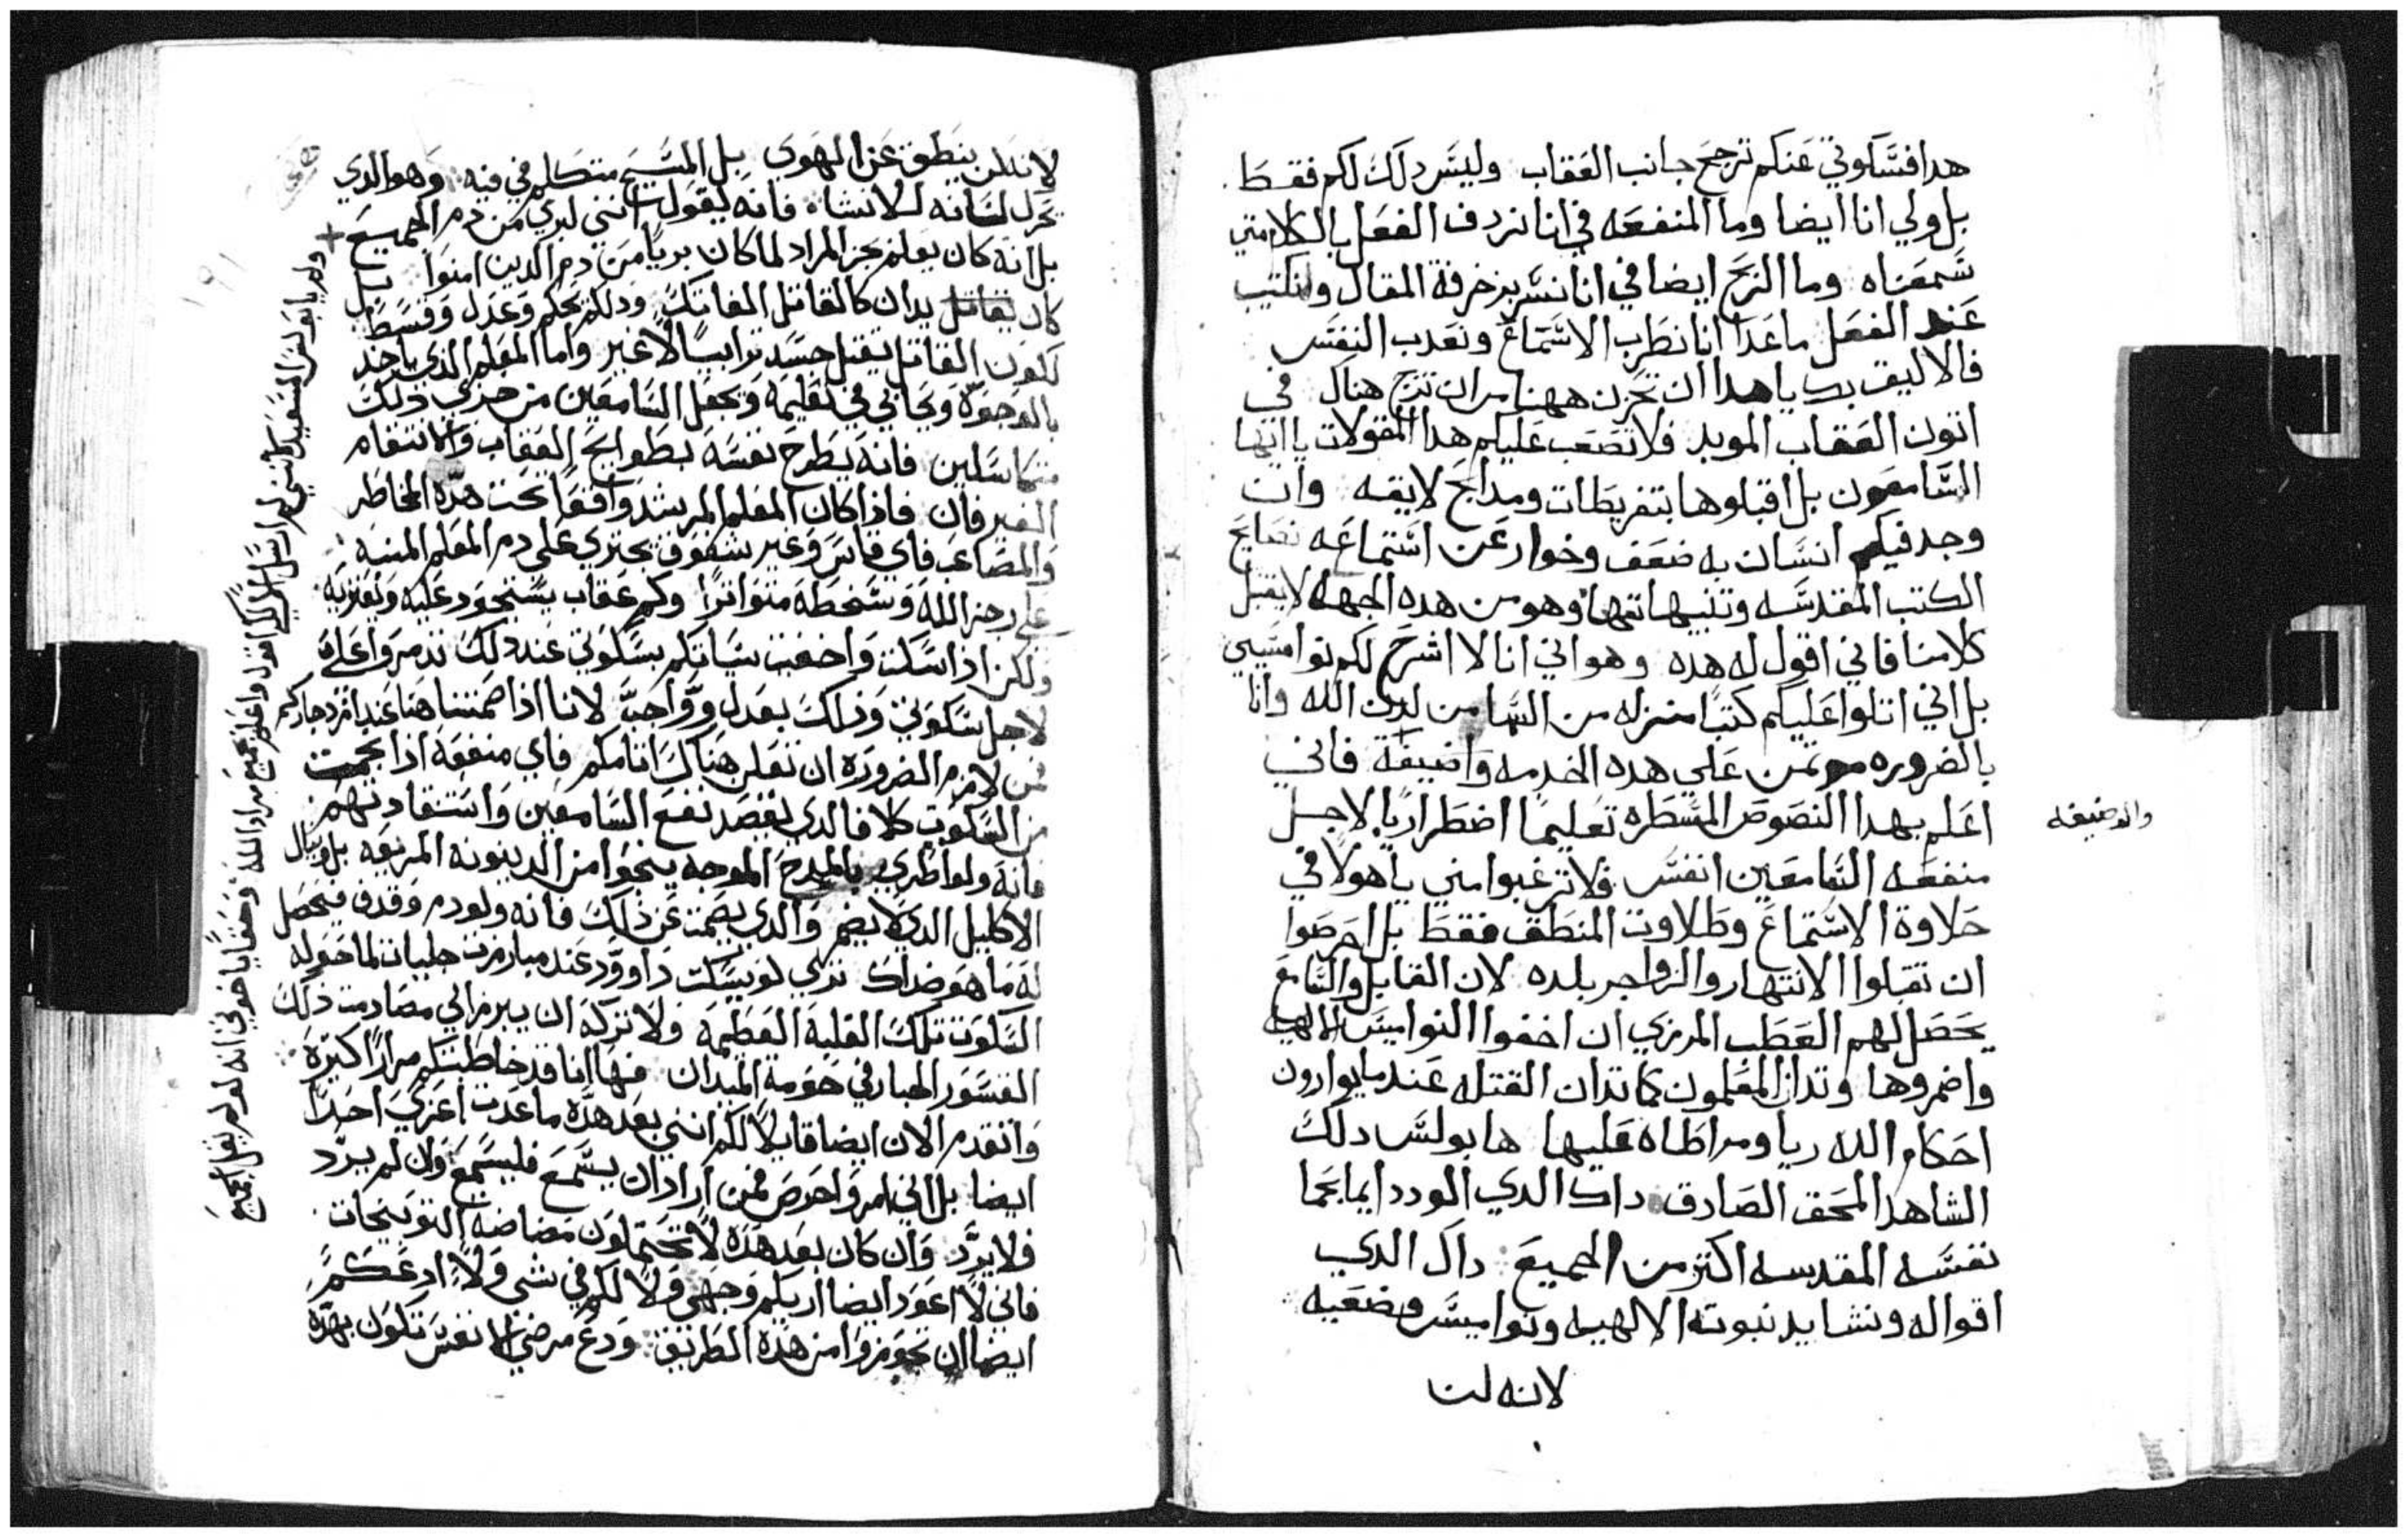 هدا فسكوتي عنكم ترجح جانب العقاب وليس دلك لكم فقط
بل ولي انا ايضا وما المنفعه في اننا نردف الفعل بالكلام متي
سمعناه وما الربح ايضا في اننا نسر بزخرفة المقال ونكتيب
عند الفعل ما عدا اننا نطرب الاستماع ونعدب النفس
فالاليق بك ياهدا ان تحزن ههنا من ان تزج هناك في
اتون العقاب الموبد فلا تصعب عليكم هدا المقولات يا ايها
السامعون بل اقبلوها بتفريطات ومدايح لايقه وان
وجد فيكم انسان به ضعف وخوار عن استماعه نصايح
الكتب المقدسه وتنبيهاتها وهو من هده الجهه لا يقبل
كلامنا فاني اقول له هده وهو اني انا لا اشرح لكم نواميسي
بل اني اتلوا عليكم كتبا منزله من السما من لدن الله وانا
بالضروره موتمن علي هده الخدمه واضيفة فاني
والوضيفه
اعلم بهدا النصوص المسطره تعليما اضطراريا لاجل
منفعه السامعين انفس فلا ترغبوا مني ياهولا في
حلاوة الاستماع وطلاوت المنطق فقط بل احرصوا
ان تقبلوا الانتهار والزواجر بلده لان القايل والسامع
يحصل لهم العطب المرزي ان اخفوا النواميس الالهيه
واضمروها وتدان المعلمون كما تدان القتله عندما يوارون
احكام الله ريا ومراطاه عليها ها بولس دلك
الشاهد المحق الصادق داك الدي الودد ايما بحما
نفسه المقدسه اكتر من الجميع داك الدي
اقواله ونشايد نبوته الالهيه ونواميس وضعيه
لانه لن
لانه لن ينطق عن الهوي بل المسيح متكلم في فيه وهو الدي
يحرك لسانه للانشاه فانه يقول انني لبري من دم الجميع
بل انه كان يعلم بجز المراد لما كان بريا من دم الدين امنوا بل
كان يقاتل يدان كالقاتل الفاتك ودلك بحكم وعدل وقسط
لكون القاتل يقتل جسد ترابيا لا غير واما المعلم الذي ياخد
بالوجوه ويحابي في تعليمه ويجعل السامعين من جري ذلك
متكاسلين فانه يطرح نفسه بطوايح العقاب والانتقام
الغير فان فاذا كان المعلم المرشد واقفا تحت هذه المخاطر
والمصاعب فاي قاس وغير شفوق يجتري علي دم المعلم المنبه
علي رجز الله وسخطه متواترا وكم عقاب يستجود عليه ويعتريه
ولكن اذا سكت واخفيت سياتكم بسكوتي عند دلك تدمروا علي
لاجل سكوتي وذلك بعدل وواجب لاننا اذا صمتنا هنا عند انزجاركم
فمن لازم الضروره ان تعلن هناك اتامكم فاي منفعة اذا نجمت
من السكوت كلا فالدي يقصد نفع السامعين واستفادتهم
فانه ولو اطري بالمدح الموجه ينجوا من الدينونه المريعه بل وينال
الاكليل الدي لا يضم والدي يصمت عن ذلك فانه ولو دم وقدف فيحصل
له ما هو ضداك تري لو يسكت داوود عند مبارزت جليات لما حوله
السكوت تلك الغلبة العظيمة ولا تركه ان يبرز الي مصادمت ذلك
القسور الجبار في حومة الميدان فها انا قد خاطبتكم مرارا كتيرة
واتقدم الان ايضا قايلا لكم انني بعد هذه ما عدت اعزي احدا
ايضا بل اني امر واحرص فمن اراد ان يسمع فليسمع وان لم يرد
فلا يرد وان كان بعد هذه لا تحتملون مضاضة التوبيخات
فاني لا اعود ايضا اريكم وجهي ولا لكم في شي ولا ادعكم
ايضا ان تجوزوا من هذه الطريق ودع مرضي الانفس تكون بهذه
وله يا بولس السعيد كانني لم ارسل اليكم اقول واعلم جميع مراد الله وحقا ياخوتي انه لو لم يقل الجميع